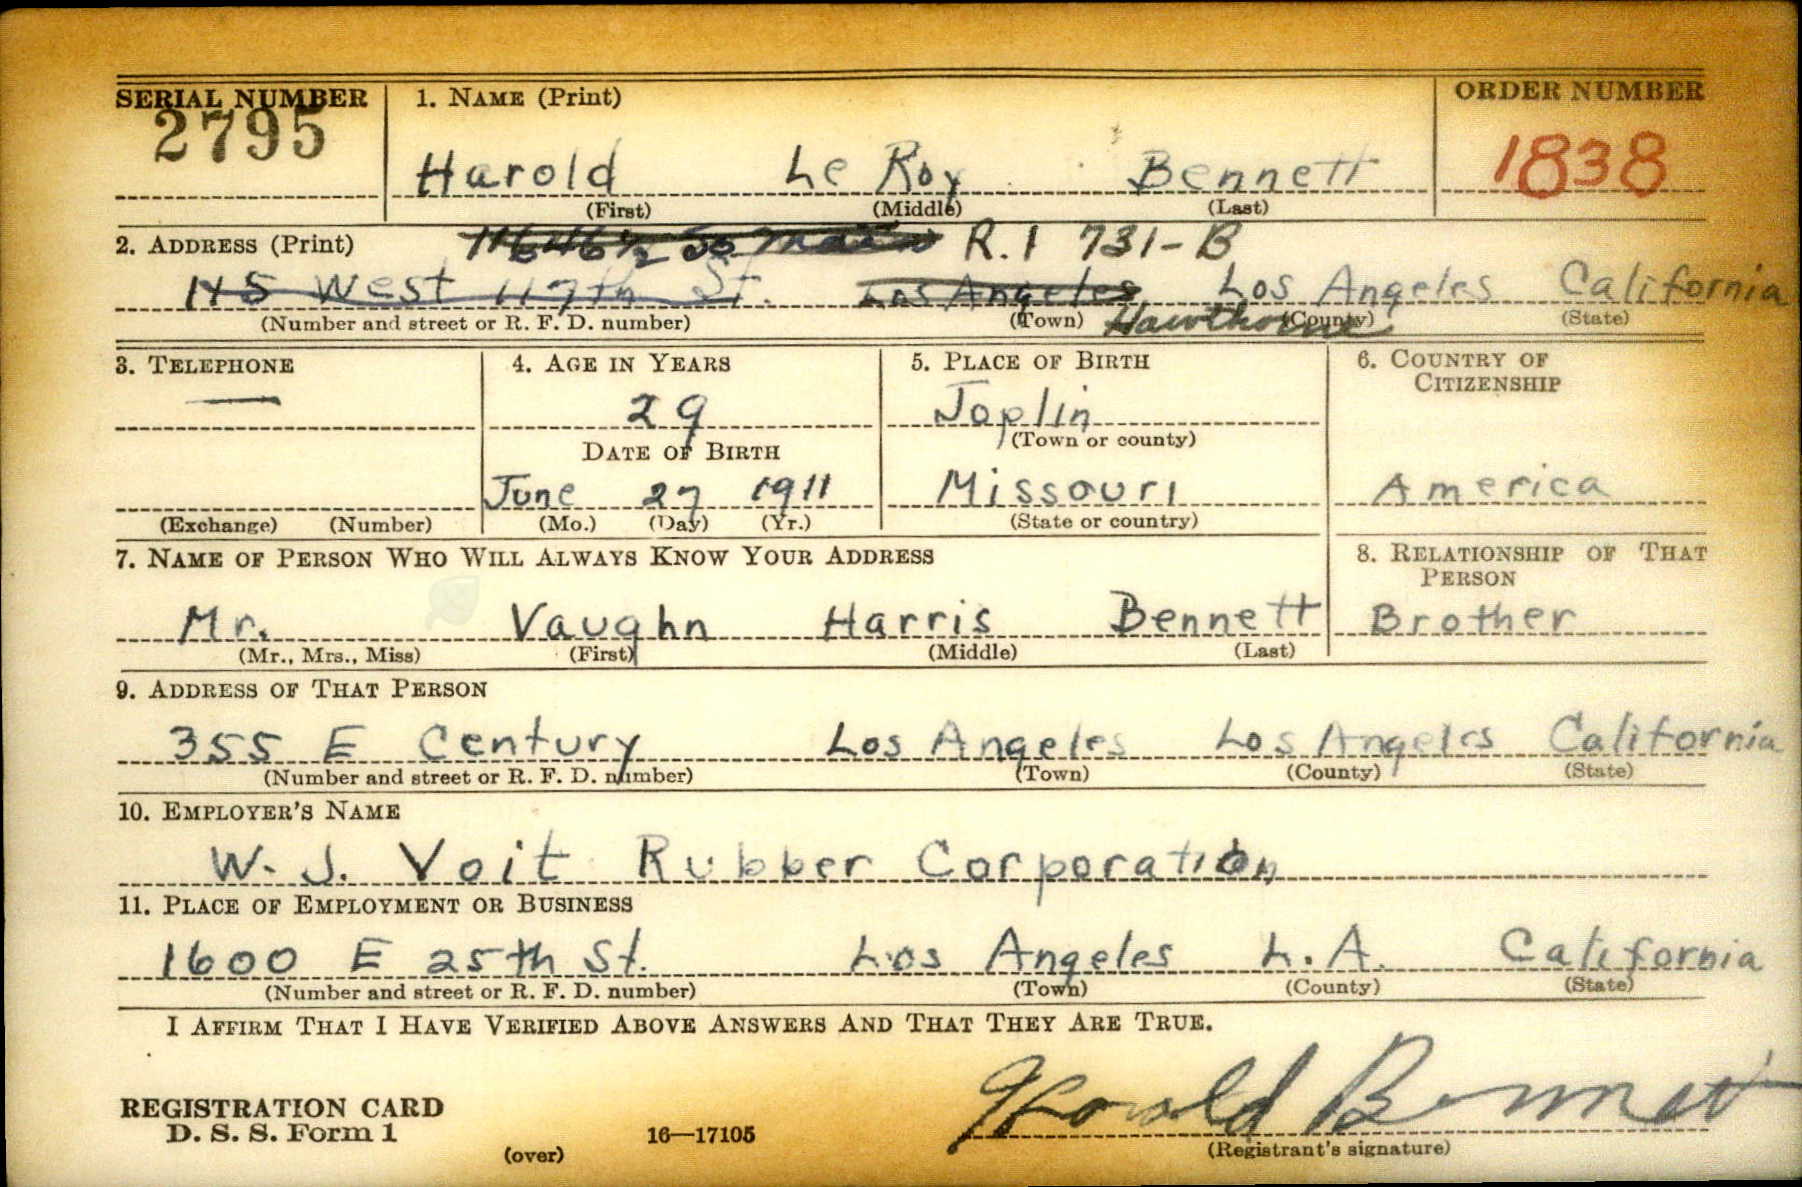 SERIAL NUMBER 1. NAME (Print) ORDER NUMBER
2795
Harold Le Roy Bennett 1838
(First) (Middle) (Last)
2. ADDRESS (Print) 11646½ So Main R.1 731-B
115 West 117th St. Los Angeles Los Angeles California
(Number and street or R. F. D. number) (Town) Hawthorne (County) (State)
3. TELEPHONE 4. AGE IN YEARS 5. PLACE OF BIRTH 6. COUNTRY OF
CITIZENSHIP
— 29 Joplin
(Town or county)
DATE OF BIRTH
June 27 1911 Missouri America
(Exchange) (Number) (Mo.) (Day) (Yr.) (State or country)
7. NAME OF PERSON WHO WILL ALWAYS KNOW YOUR ADDRESS 8. RELATIONSHIP OF THAT
PERSON
Mr. Vaughn Harris Bennett Brother
(Mr., Mrs., Miss) (First) (Middle) (Last)
9. ADDRESS OF THAT PERSON
355 E Century Los Angeles Los Angeles California
(Number and street or R. F. D. number) (Town) (County) (State)
10. EMPLOYER'S NAME
W. J. Voit Rubber Corporation
11. PLACE OF EMPLOYMENT OR BUSINESS
1600 E 25th St. Los Angeles L.A. California
(Number and street or R. F. D. number) (Town) (County) (State)
I AFFIRM THAT I HAVE VERIFIED ABOVE ANSWERS AND THAT THEY ARE TRUE.
Harold Bennett
REGISTRATION CARD
D. S. S. Form 1 16—17105
(over) (Registrant's signature)